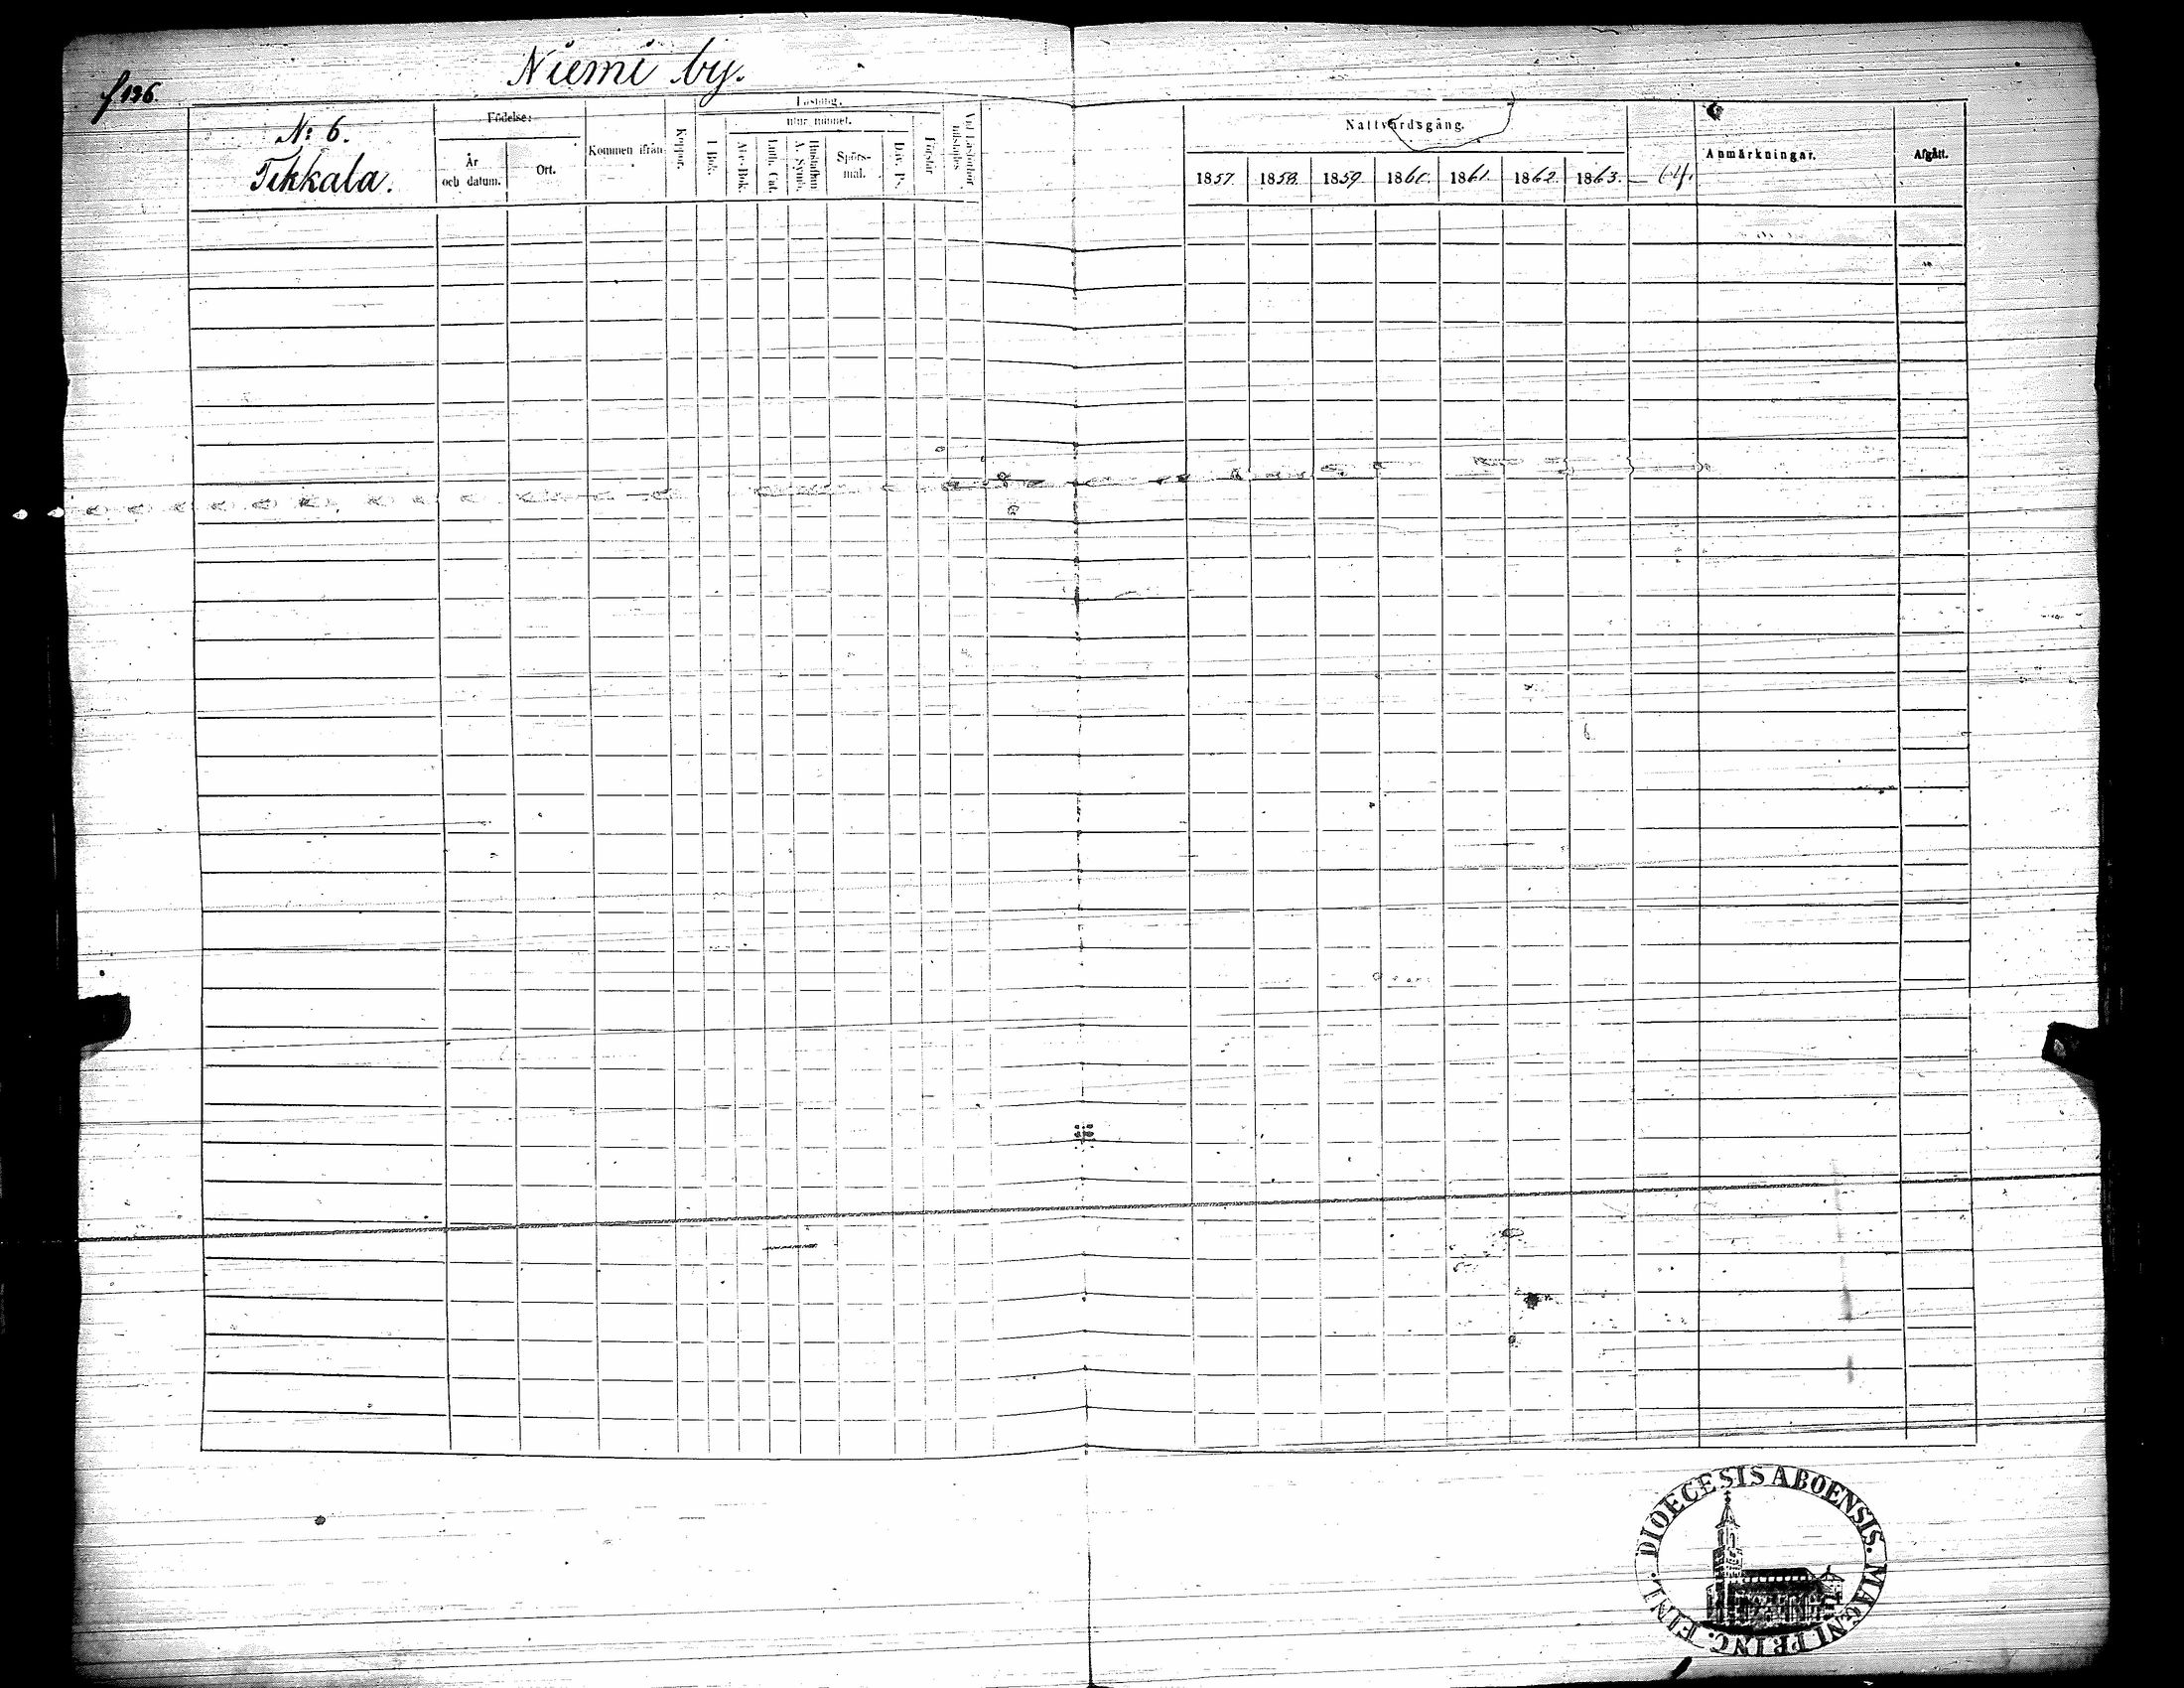 Niemi by.
f 196.
N: 6.
Tikkala.
Födelse:
År och datum.
Ort.
Kommen ifrån
Koppor.
Läsning.
utur minnet.
I Bok.
Abc-Bok.
Luth. Cat.
Hustaflan. A. Symb.
Spörs-mål.
Dav. P.
Förstår
Nattvardsgång.
1857.
1858.
1859.
1860.
1861.
1862.
1863.
64.
Anmärkningar.
Afgått.
DIOECESIS ABOENSIS. MAGNI PRINC. FINL.